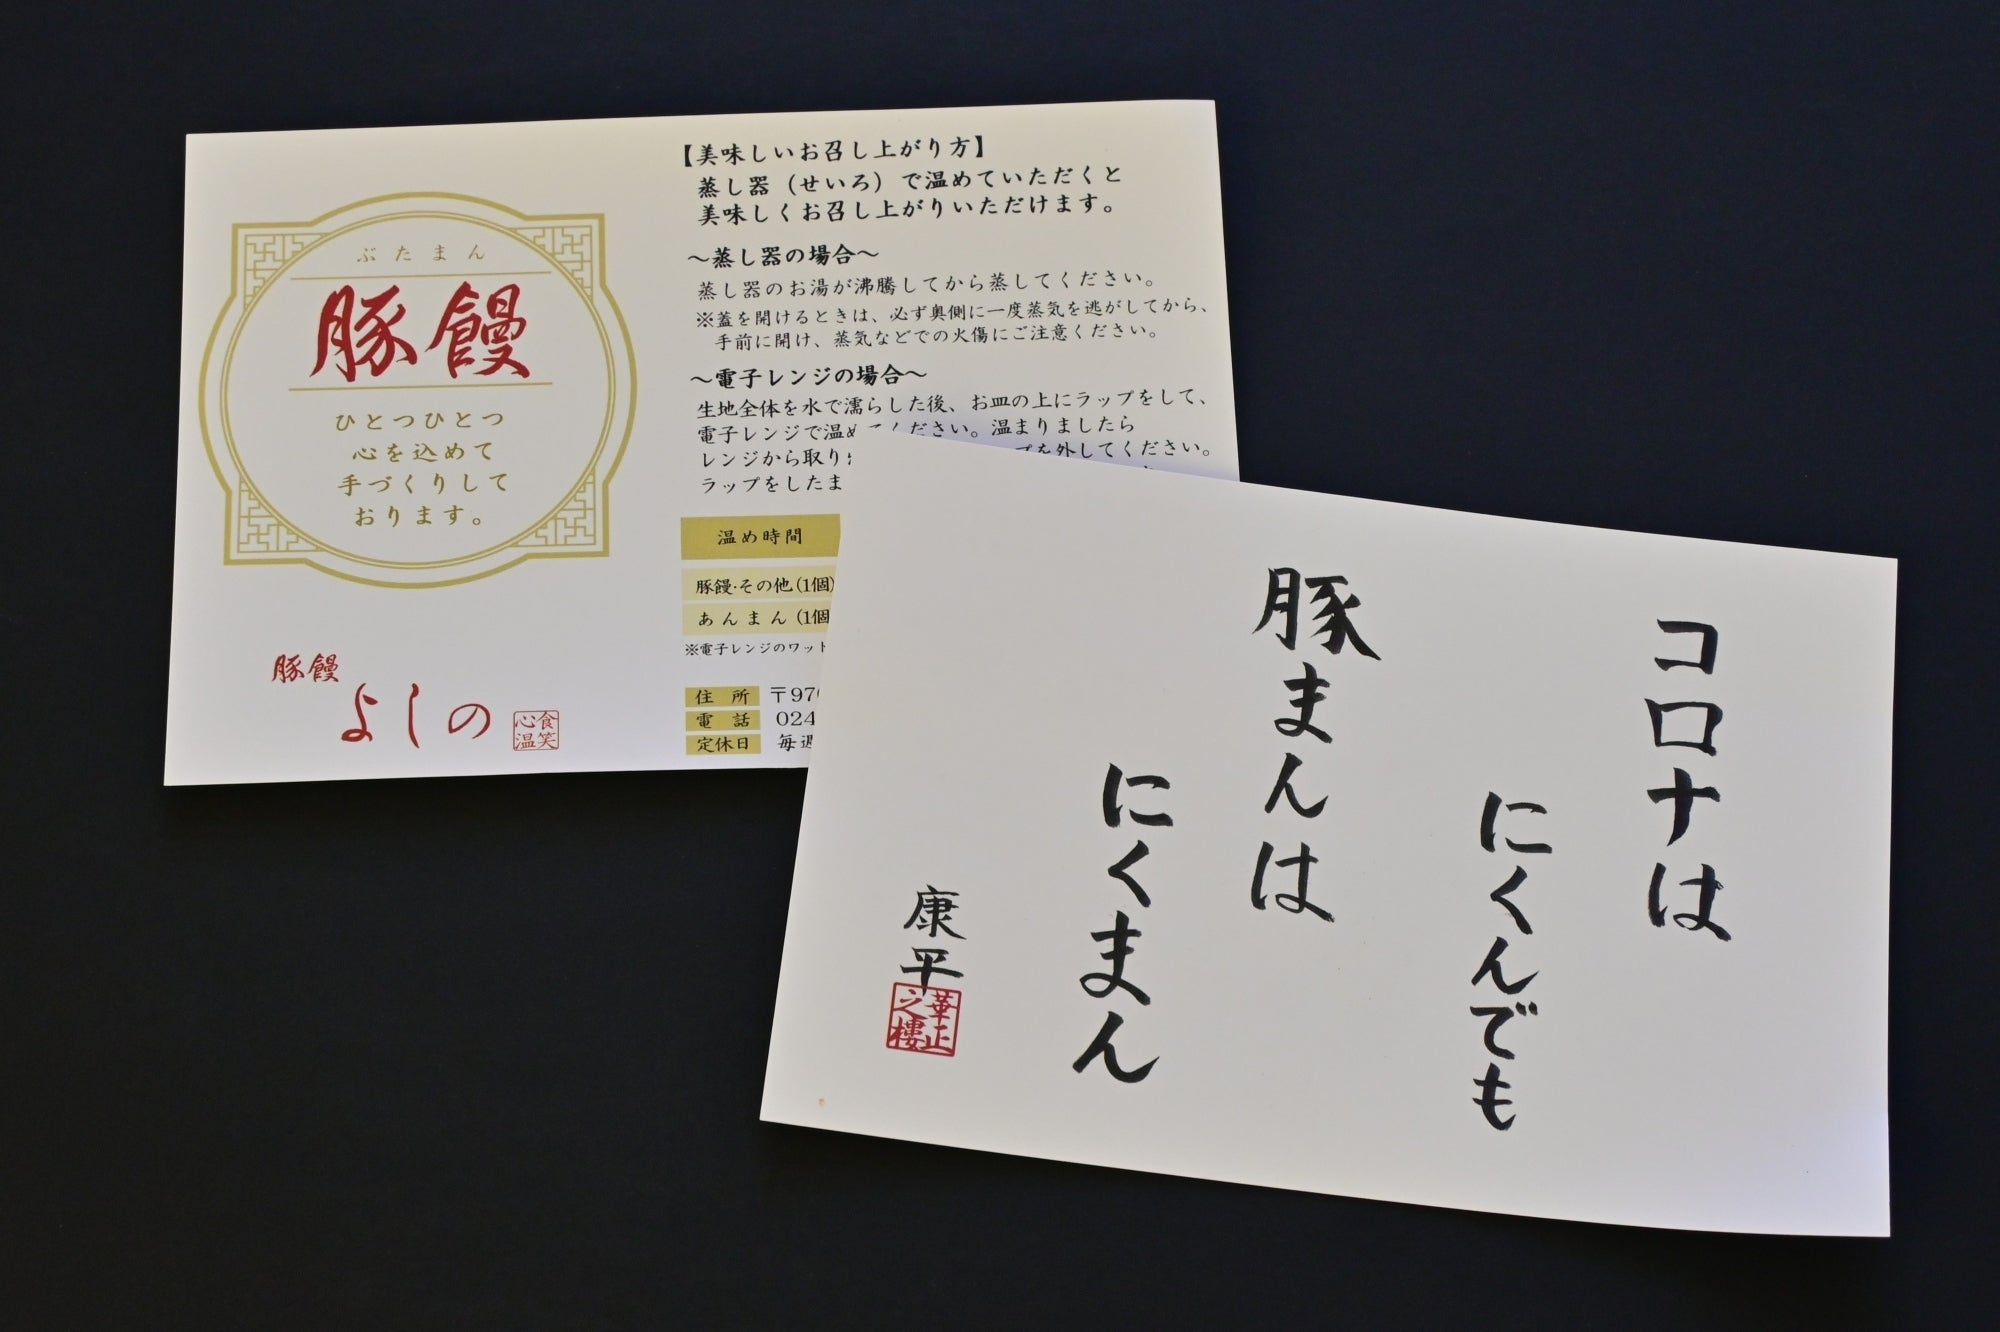 ぶたまん
豚饅
ひとつひとつ
心を込めて
手づくりして
おります。
豚饅
よしの
食笑
心温
【美味しいお召し上がり方】
蒸し器（せいろ）で温めていただくと
美味しくお召し上がりいただけます。
～蒸し器の場合～
蒸し器のお湯が沸騰してから蒸してください。
※蓋を開けるときは、必ず奥側に一度蒸気を逃がしてから、
手前に開け、蒸気などでの火傷にご注意ください。
～電子レンジの場合～
生地全体を水で濡らした後、お皿の上にラップをして、
電子レンジで温めてください。温まりましたら
レンジから取り プを外してください。
ラップをしたま
温め時間
豚饅・その他(1個)
あんまん(1個
※電子レンジのワット
住所 〒97
電話 024
定休日 毎週
コロナは
にくんでも
豚まんは
にくまん
康平
華正
之樓